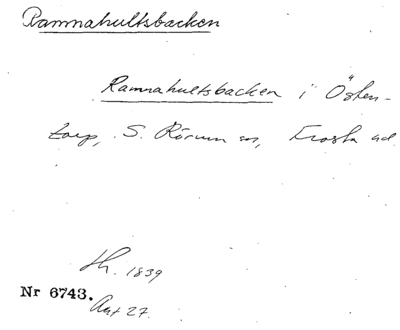 Ramnahultsbacken
Ramnahultsbacken i Östen-
torp, S. Rörum sn, Frosta hd
Lh. 1839
Nr 6743.
Akt 27.